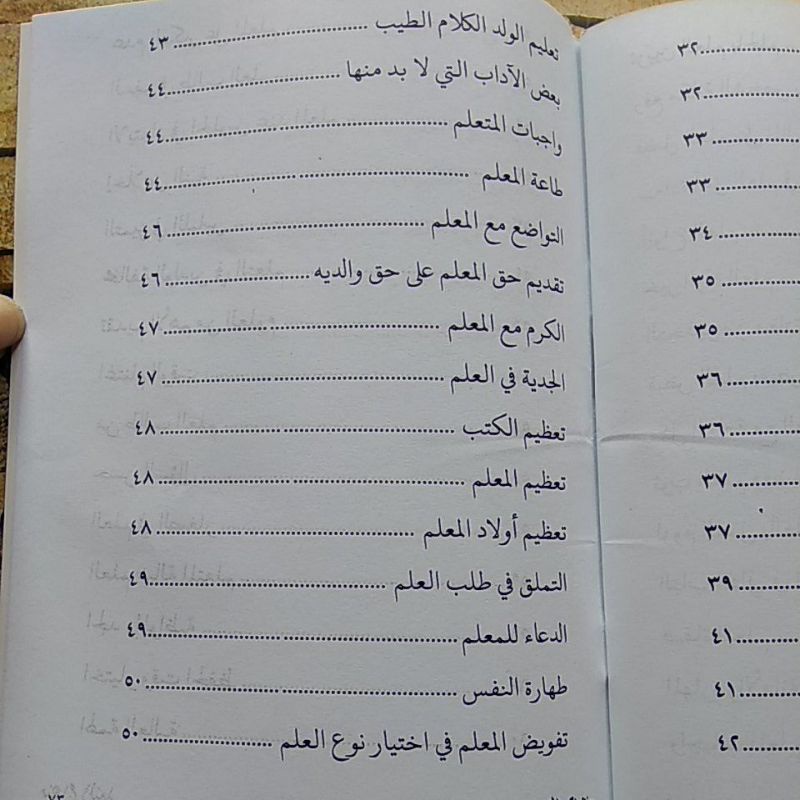 تعليم الولد الكلام الطيب ........ ٤٣
بعض الآداب التي لا بد منها ........ ٤٤
واجبات المتعلم ........ ٤٤
طاعة المعلم ........ ٤٤
التواضع مع المعلم ........ ٤٦
تقديم حق المعلم على حق والديه ........ ٤٦
الكرم مع المعلم ........ ٤٧
الجدية في العلم ........ ٤٧
تعظيم الكتب ........ ٤٨
تعظيم المعلم ........ ٤٨
تعظيم أولاد المعلم ........ ٤٨
التملق في طلب العلم ........ ٤٩
الدعاء للمعلم ........ ٤٩
طهارة النفس ........ ٥٠
تفويض المعلم في اختيار نوع العلم ........ ٥٠
........ ٣٢
........ ٣٢
........ ٣٣
........ ٣٣
........ ٣٤
........ ٣٥
........ ٣٥
........ ٣٦
........ ٣٦
........ ٣٧
........ ٣٧
........ ٣٩
........ ٤١
........ ٤١
........ ٤٢